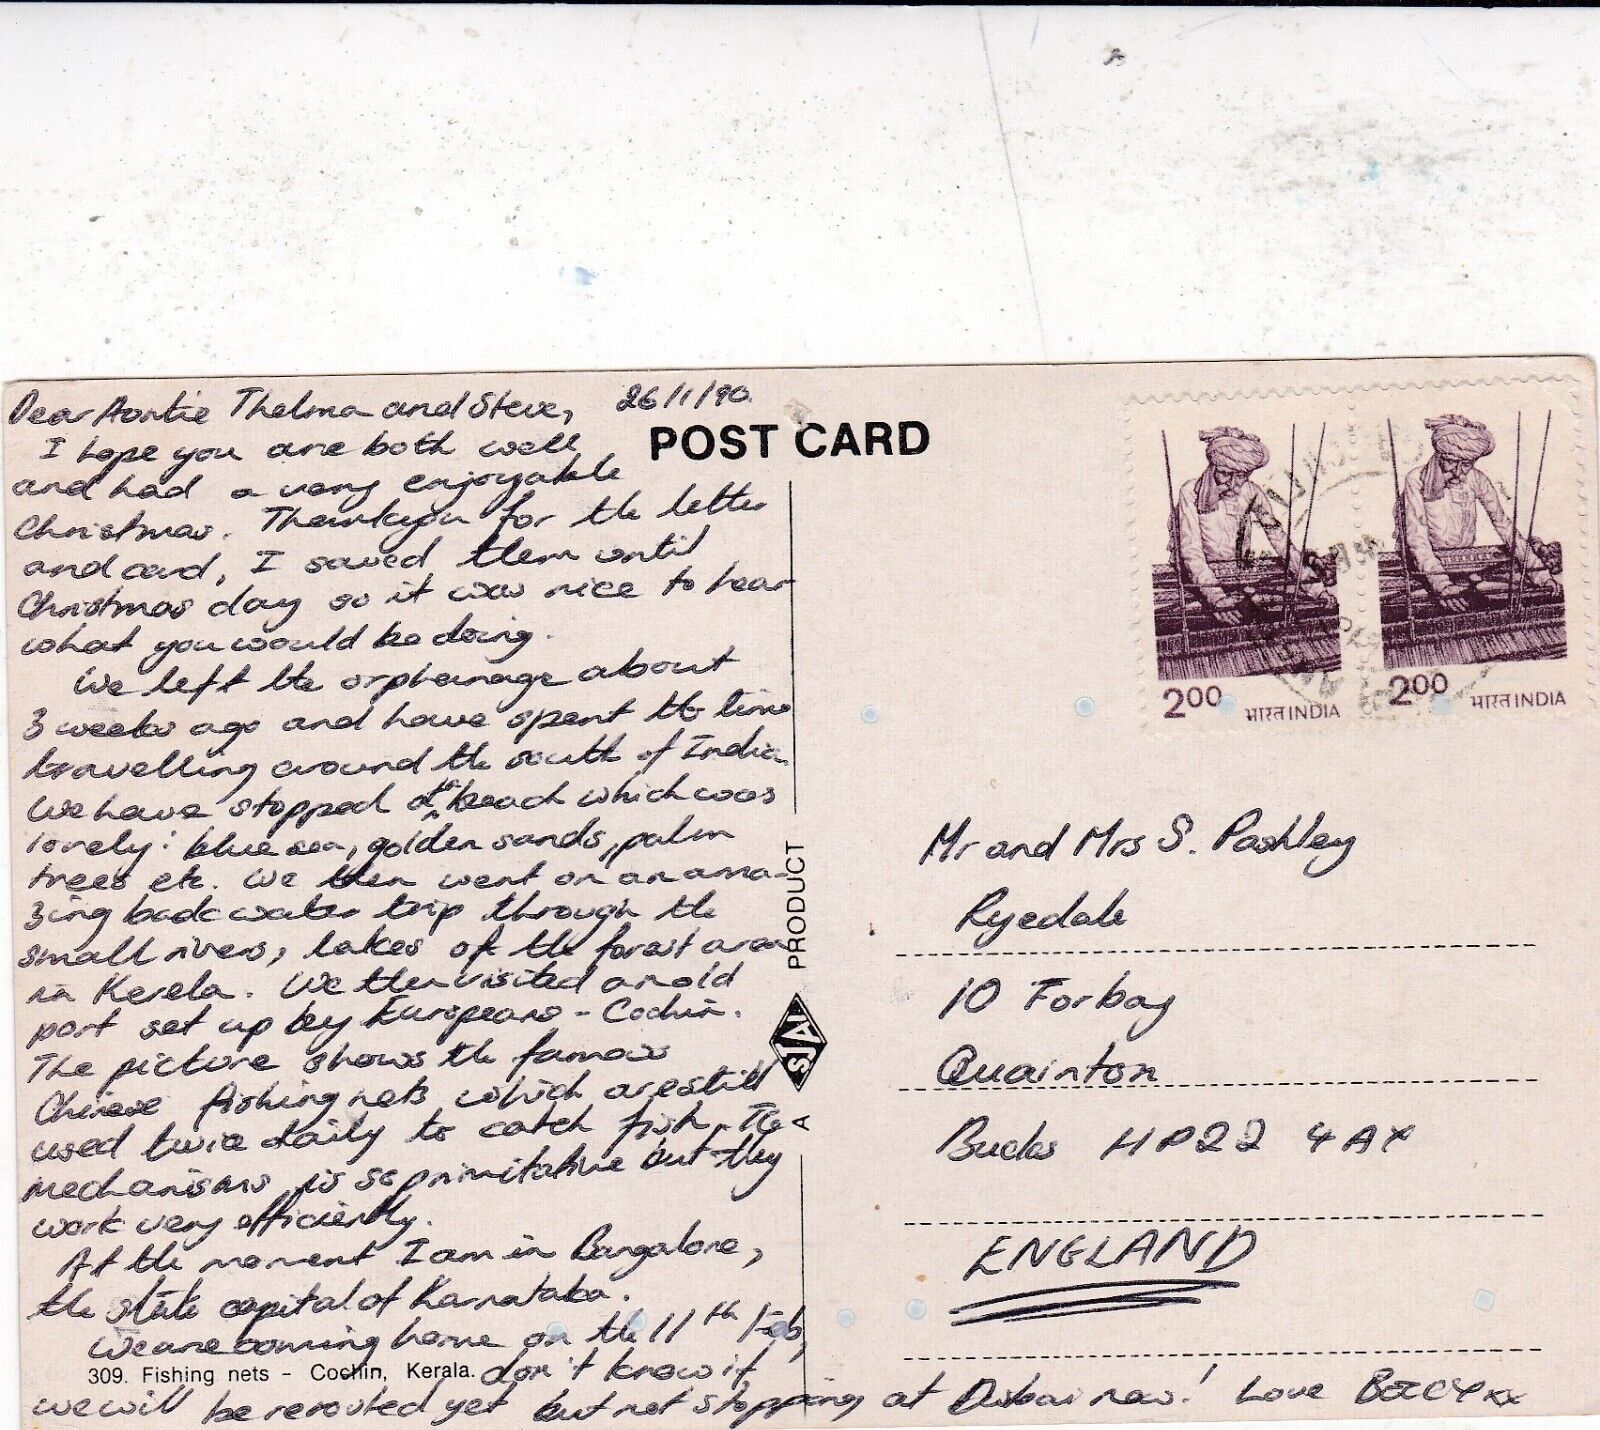 Dear Auntie Thelma and Steve, 26/1/90.
I hope you are both well
and had a very enjoyable
Christmas. Thankyou for the letter
and card, I saved them until
Christmas day so it was nice to hear
what you would be doing.
We left the orphanage about
3 weeks ago and have spent the time
travelling around the south of India.
We have stopped at the beach which was
lovely: blue sea, golden sands, palm
trees etc. We then went on an ama-
zing backwater trip through the
small rivers, lakes of the forest area
in Kerela. We then visited an old
port set up by Europeans - Cochin.
The picture shows the famous
Chinese fishing nets which are still
used twice daily to catch fish. The
mechanisms is so primitative but they
work very efficiently.
At the moment I am in Bangalore,
the state capital of Karnataka.
We are coming home on the 11th Feb,
don't know if
we will be rerouted yet but not stopping at Dubai now! Love xx
309. Fishing nets - Cochin, Kerala.
POST CARD
A PRODUCT
200 भारत INDIA
200 भारत INDIA
Mr and Mrs S. Pashley
Ryedale
10 Forbay
Quainton
Bucks HP22 4AX
ENGLAND